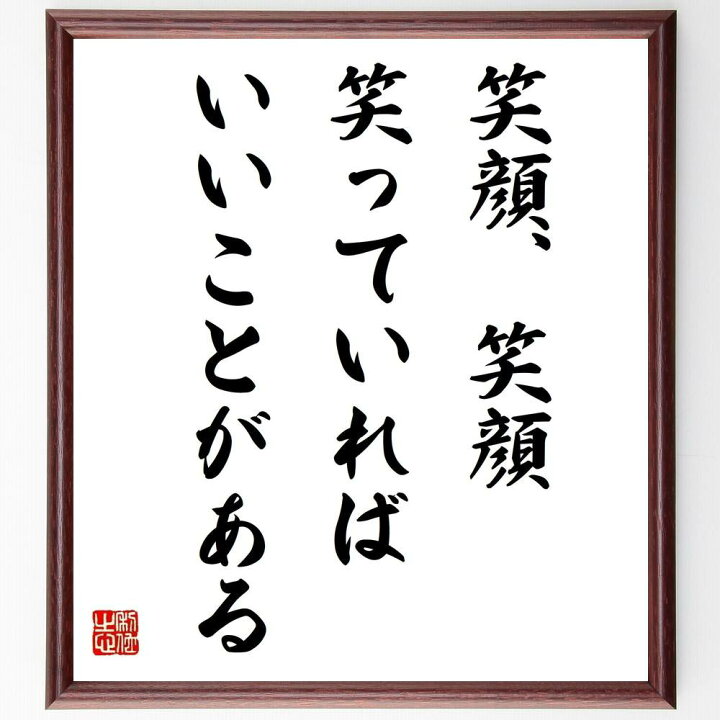 笑顔、笑顔
笑っていれば
いいことがある